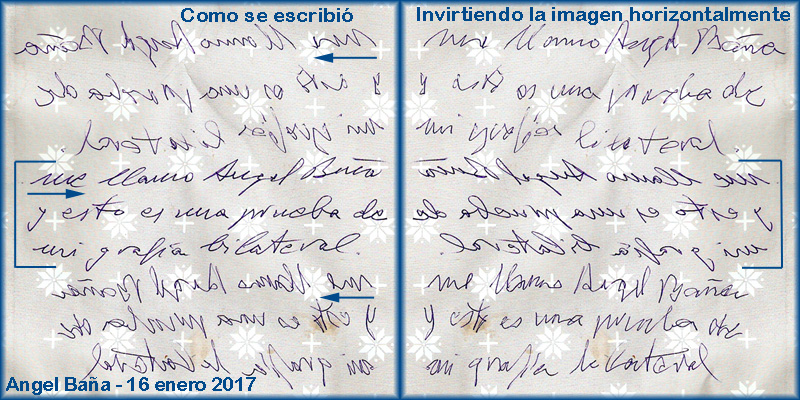 Como se escribió
me llamo Angel Baña
y esto es una prueba de
mi grafía bilateral.
me llamo Angel Baña
y esto es una prueba de
mi grafía bilateral.
me llamo Angel Baña
y esto es una prueba de
mi grafía bilateral
Angel Baña - 16 enero 2017
Invirtiendo la imagen horizontalmente
me llamo Angel Baña
y esto es una prueba de
mi grafía bilateral.
me llamo Angel Baña
y esto es una prueba de
mi grafía bilateral.
me llamo Angel Baña
y esto es una prueba de
mi grafía bilateral